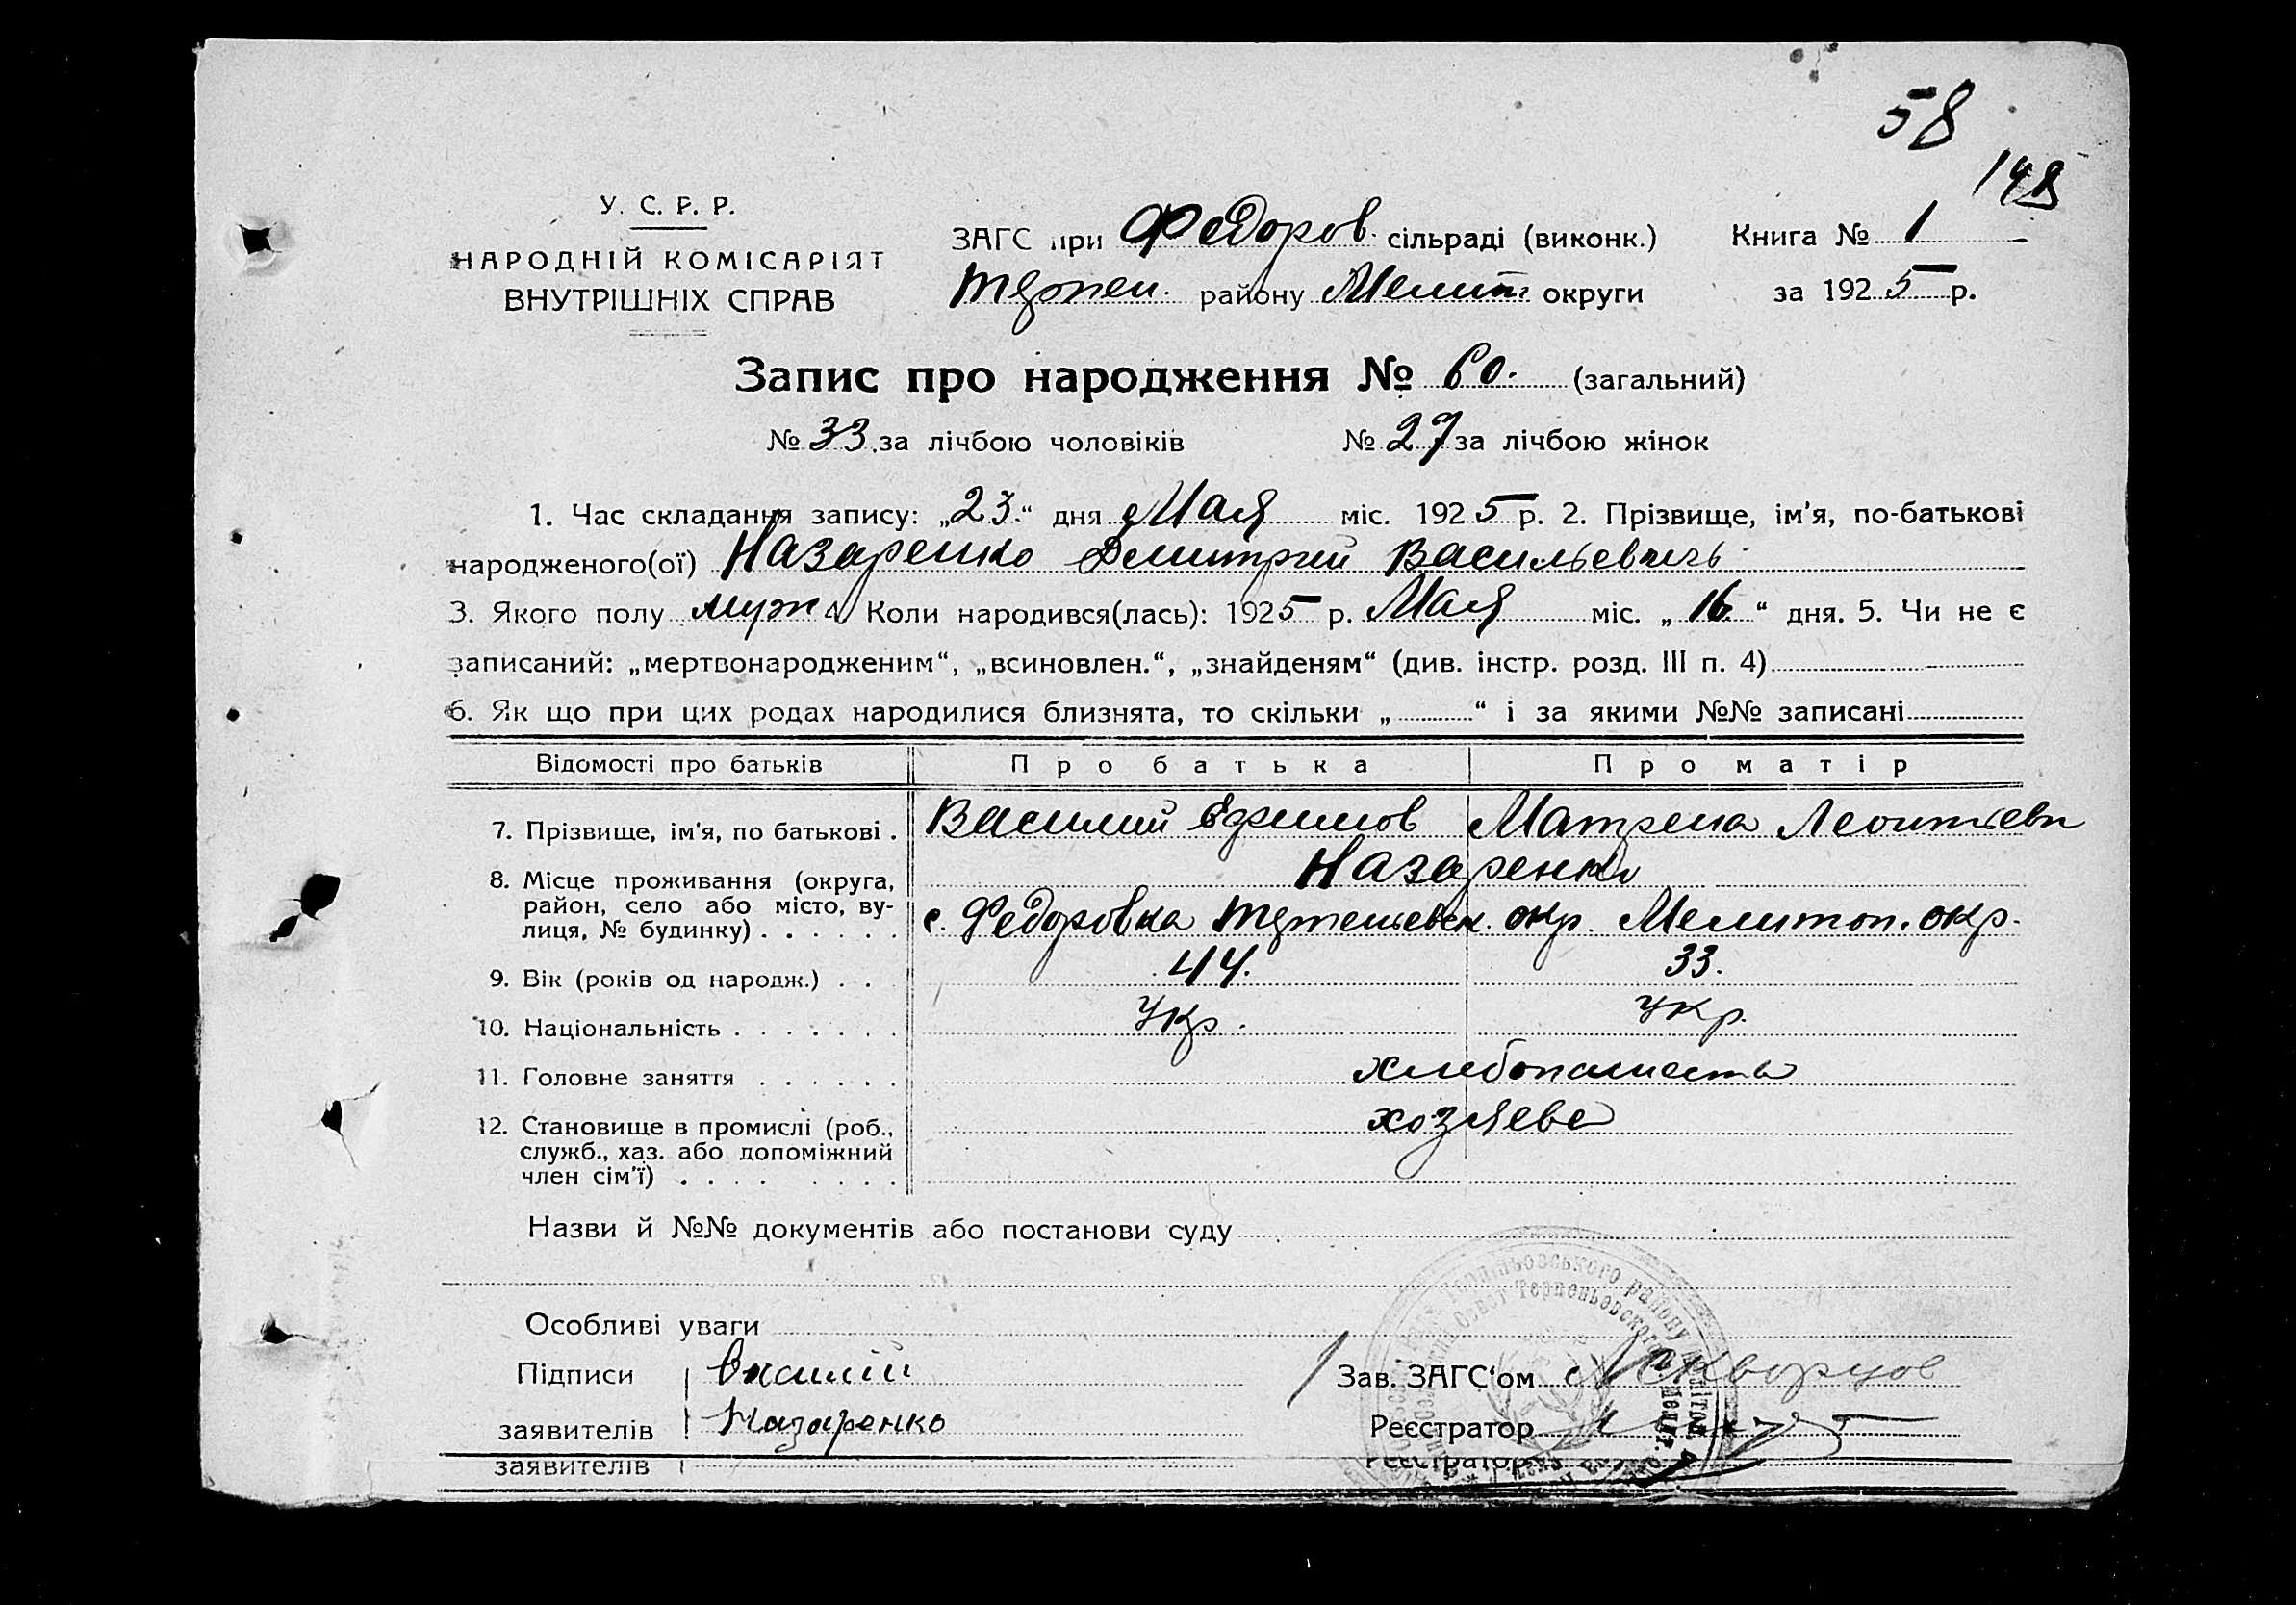 58
148
У. С. Р. Р.
НАРОДНІЙ КОМІСАРІЯТ
ВНУТРІШНІХ СПРАВ
ЗАГС при Федоров. сільраді (виконк.) Книга № 1
Терпен. району Мелит. округи за 1925 р.
Запис про народження № 60. (загальний)
№ 33 за лічбою чоловіків № 27 за лічбою жінок
1. Час складання запису: „23.“ дня Мая міс. 1925 р. 2. Прізвище, ім'я, по-батькові
народженого(ої) Назаренко Демитрий Васильевичь
3. Якого полу муж 4. Коли народився(лась): 1925 р. Мая міс. „16.“ дня. 5. Чи не є
записаний: „мертвонародженим“, „всиновлен.“, „знайденям“ (див. інстр. розд. III п. 4)
6. Як що при цих родах народилися близнята, то скільки „ “ і за якими №№ записані
Відомості про батьків Про батька Про матір
7. Прізвище, ім'я, по батькові . Василий Ефимов Матрена Леонтьевн
Назаренко
8. Місце проживання (округа,
район, село або місто, ву-
лиця, № будинку) . . . . . . с. Федоровка Терпеньевск. окр. Мелитоп. окр.
9. Вік (років од народж.) . . 44. 33.
10. Національність . . . . . . . Укр. Укр.
11. Головне заняття . . . . . . хлебопашеств
12. Становище в промислі (роб., хозяева
служб., хаз. або допоміжний
член сім'ї) . . . . . . . .
Назви й №№ документів або постанови суду
Особливі уваги
Підписи Василій
заявителів Назаренко
Зав. ЗАГС'ом Скворцов
Реєстратор
заявителів
Реєстратор